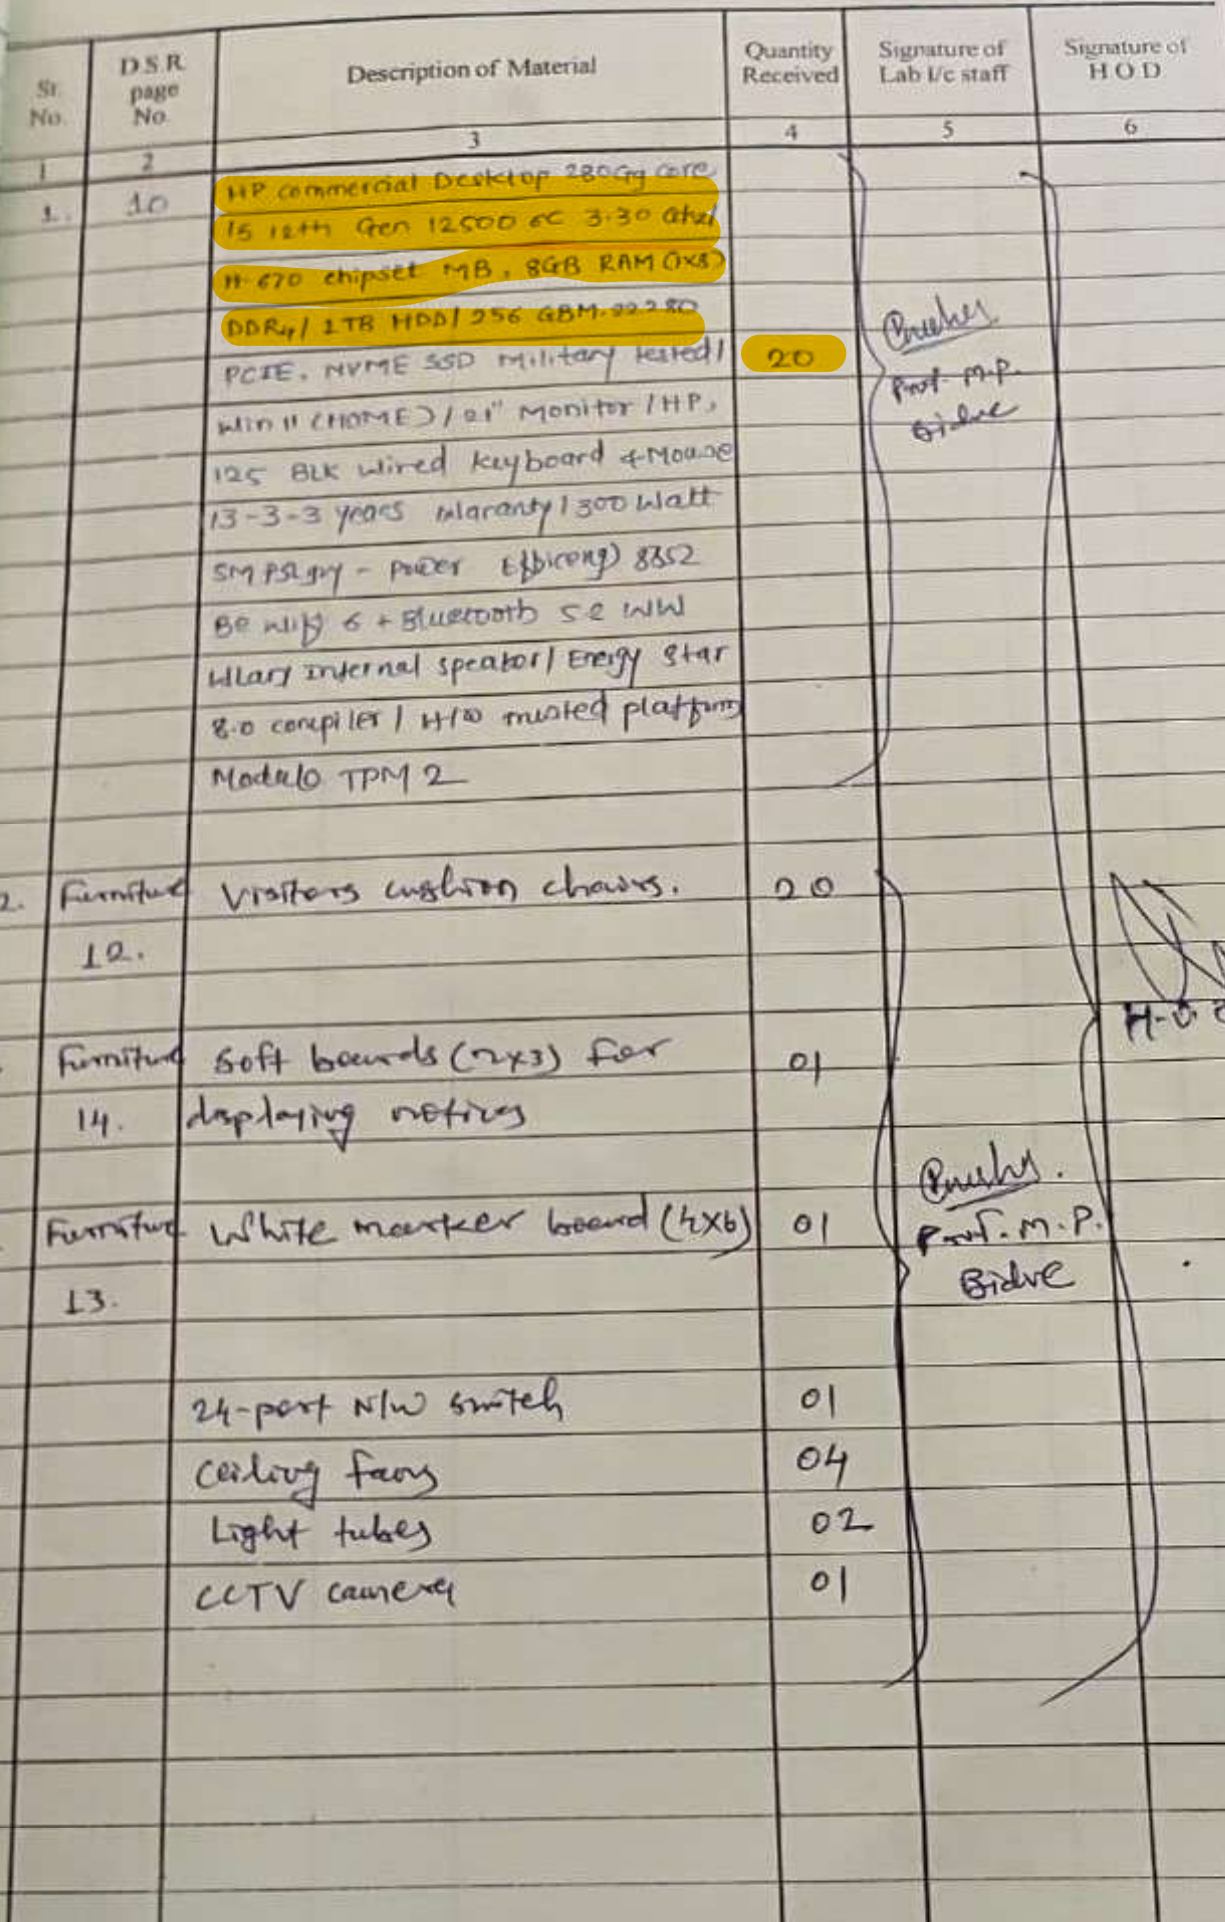 Sr. No.
D.S.R. page No.
Description of Material
Quantity Received
Signature of Lab I/c staff
Signature of H O D
1 2 3 4 5 6
1. 10 HP commercial Desktop 280G9 core
i5 12th Gen 12500 6C 3.30 Ghz/
H-670 chipset MB, 8GB RAM (1x8)
DDR4/ 1TB HDD/ 256 GBM.22280
PCIE. NVME SSD Military tested/ 20
Win 11 (HOME) / 21" Monitor / HP,
125 BLK wired keyboard & Mouse
13-3-3 years Waranty / 300 Watt
Power 8852
Be Wify 6 + Bluetooth 5.2 WW
Internal speaker/ Energy Star
8.0 / H/W trusted platform
Module TPM 2
Prof. M.P.
Bidve
2. Furniture Visitors cushion chairs. 20
12.
H.O.
Furniture Soft boards (2x3) for 01
14. displaying notices
Furniture White marker board (4x6) 01
13.
Prof. M.P.
Bidve
24-port N/W switch 01
Ceiling fans 04
Light tubes 02
CCTV camera 01